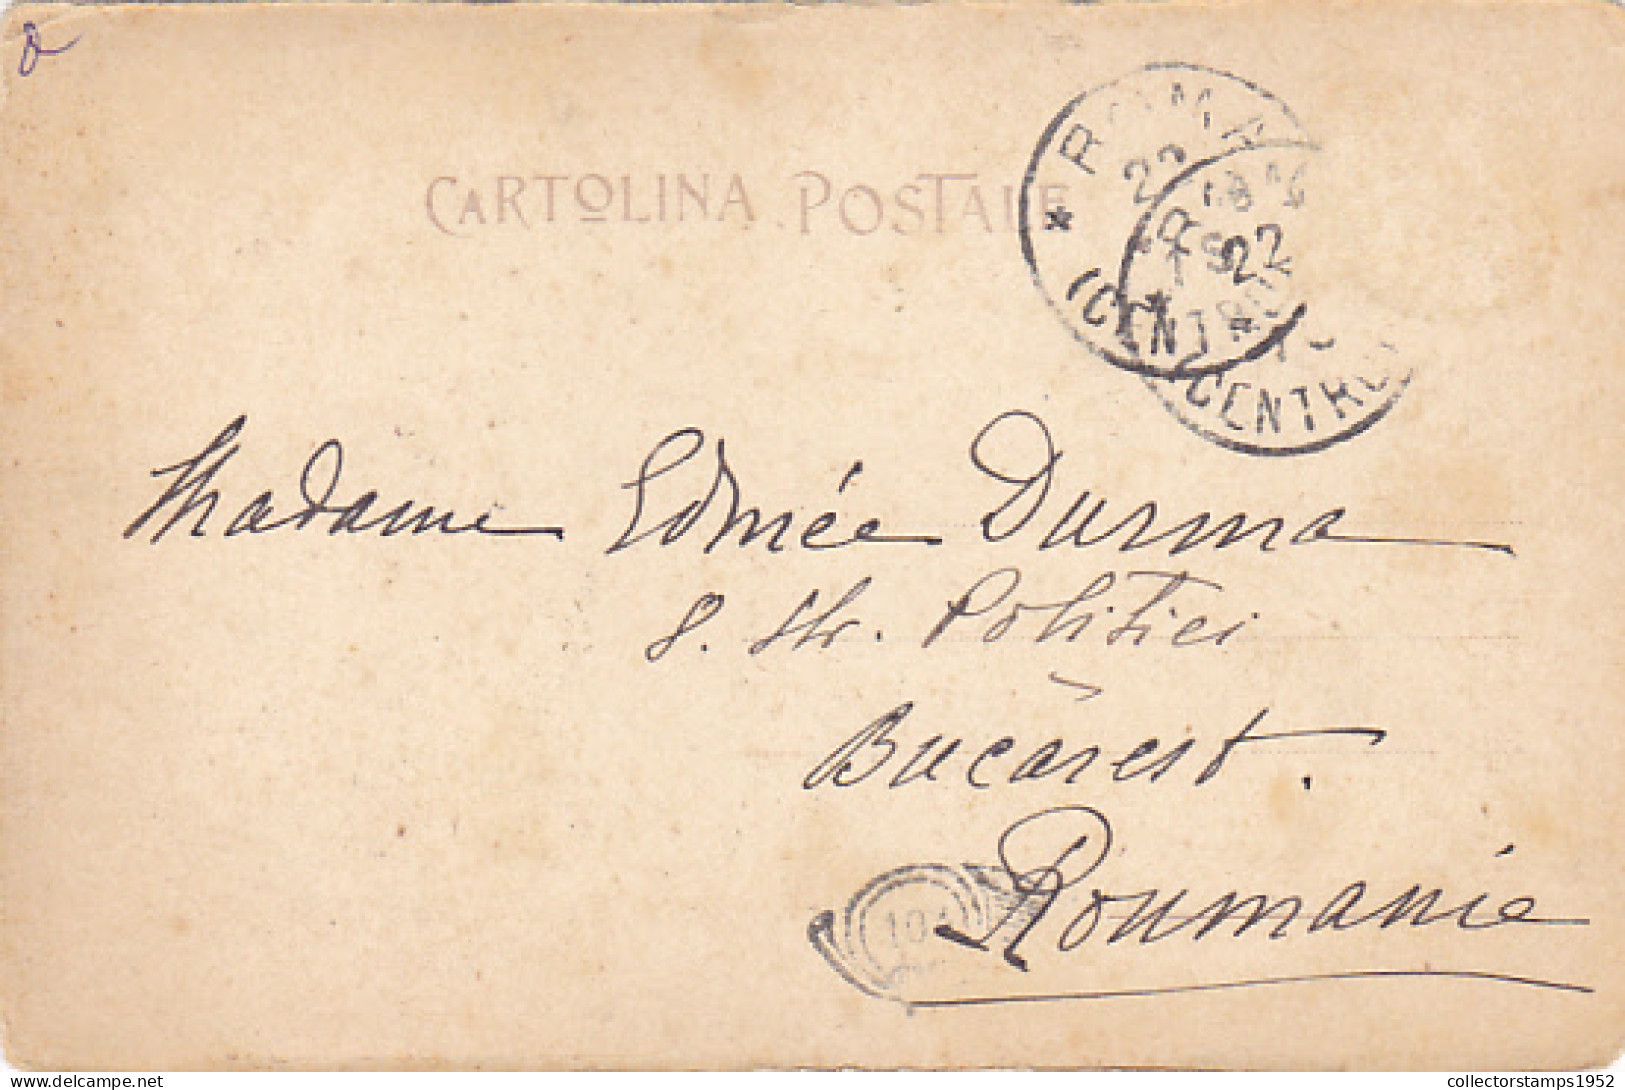 CARTOLINA POSTALE
ROMA
22
(CENTRO)
22
CENTRO
Madame Edmée Durma
8. Str. Politiei
Bucarest.
Roumanie
collectorstamps1952